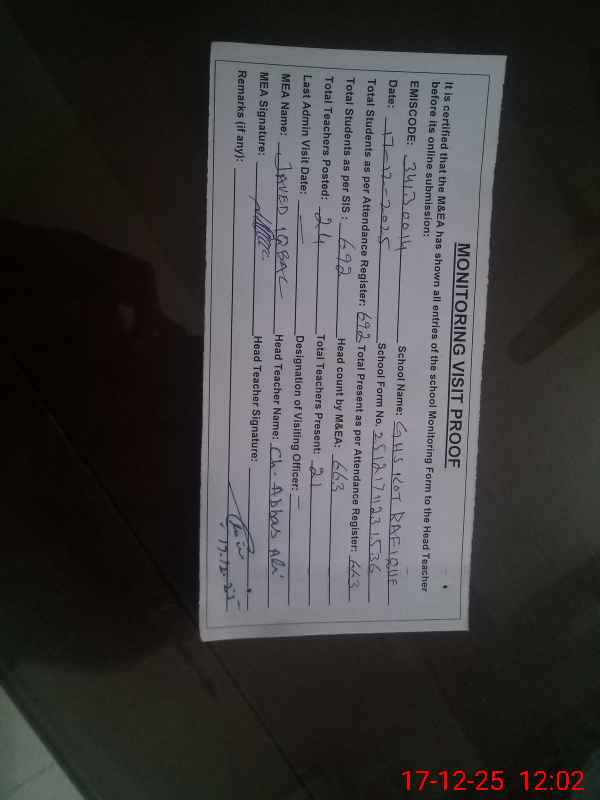 MONITORING VISIT PROOF
It is certified that the M&EA has shown all entries of the school Monitoring Form to the Head Teacher
before its online submission:
EMISCODE: 34130014 School Name: GHS KOT RAFIQUE
Date: 17-12-2025 School Form No. 25121711231536
Total Students as per Attendance Register: 692 Total Present as per Attendance Register: 663
Total Students as per SIS: 692 Head count by M&EA: 663
Total Teachers Posted: 24 Total Teachers Present: 21
Last Admin Visit Date: — Designation of Visiting Officer: —
MEA Name: JAVED IQBAL Head Teacher Name: Ch. Abbas Ali
MEA Signature: Head Teacher Signature:
Remarks (if any): 17.12.25
17-12-25 12:02